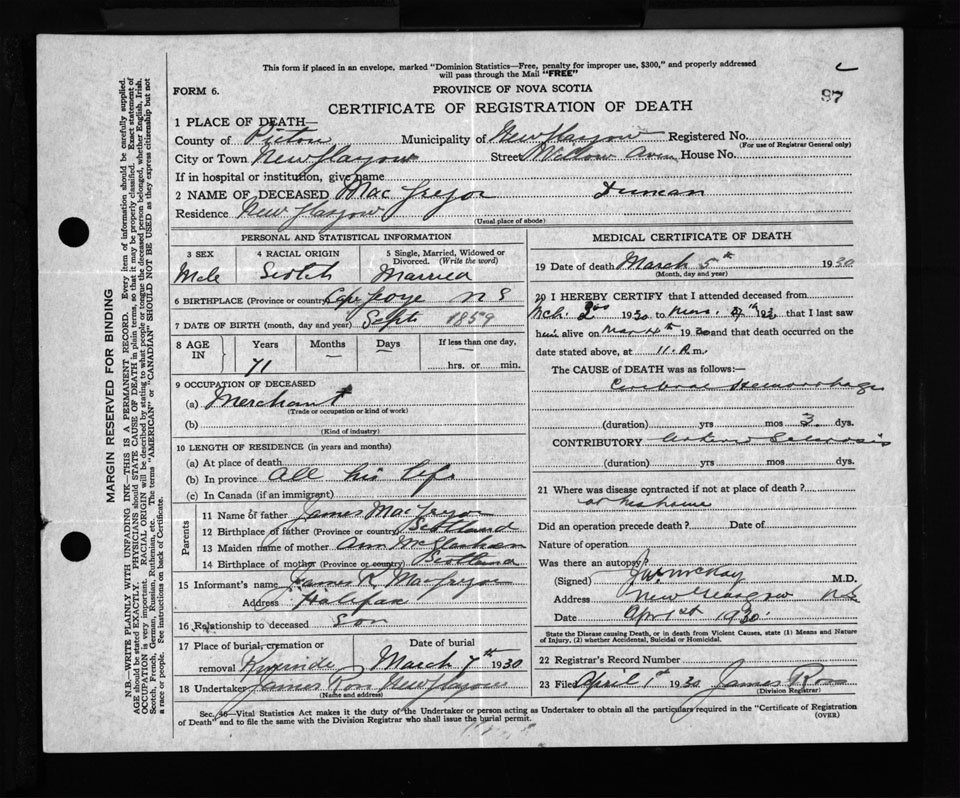 This form if placed in an envelope, marked "Dominion Statistics—Free, penalty for improper use, $300," and properly addressed
will pass through the Mail "FREE"
FORM 6.
PROVINCE OF NOVA SCOTIA
97
CERTIFICATE OF REGISTRATION OF DEATH
1 PLACE OF DEATH—
County of Pictou Municipality of New Glasgow Registered No.
(For use of Registrar General only)
City or Town New Glasgow Street Willow Aven House No.
If in hospital or institution, give name
2 NAME OF DECEASED MacGregor Duncan
Residence New Glasgow
(Usual place of abode)
PERSONAL AND STATISTICAL INFORMATION
3 SEX 4 RACIAL ORIGIN 5 Single, Married, Widowed or
Divorced. (Write the word)
Male Scotch Married
6 BIRTHPLACE (Province or country) Cape George N S
7 DATE OF BIRTH (month, day and year) Sept 1859
8 AGE IN Years Months Days If less than one day,
71 hrs. or min.
9 OCCUPATION OF DECEASED
(a) Merchant
(Trade or occupation or kind of work)
(b)
(Kind of industry)
10 LENGTH OF RESIDENCE (in years and months)
(a) At place of death
(b) In province All his life
(c) In Canada (if an immigrant)
Parents
11 Name of father James MacGregor
12 Birthplace of father (Province or country) Scotland
13 Maiden name of mother Ann
14 Birthplace of mother (Province or country) Scotland
15 Informant's name James R. MacGregor
Address Halifax
16 Relationship to deceased son
17 Place of burial, cremation or Date of burial
removal Riverside March 7th 1930
18 Undertaker James Ross New Glasgow
(Name and address)
MEDICAL CERTIFICATE OF DEATH
19 Date of death March 5th 1930
(Month, day and year)
20 I HEREBY CERTIFY that I attended deceased from
Mch. 2nd 1930 to Mar. 193 that I last saw
him alive on Mar 4th 1930 and that death occurred on
date stated above, at 11. m.
The CAUSE of DEATH was as follows:—
Cerebral Hemorrhage
(duration) yrs mos 3 dys.
CONTRIBUTORY Arterio Sclerosis
(duration) yrs. mos. dys.
21 Where was disease contracted if not at place of death?
at his home
Did an operation precede death? Date of
Nature of operation
Was there an autopsy?
(Signed) McKay M.D.
Address New Glasgow NS
Date Apr 1st 1930
State the Disease causing Death, or in death from Violent Causes, state (1) Means and Nature
of Injury, (2) whether Accidental, Suicidal or Homicidal.
22 Registrar's Record Number
23 Filed April 1st 1930 James Ross
(Division Registrar)
Sec. 36—Vital Statistics Act makes it the duty of the Undertaker or person acting as Undertaker to obtain all the particulars required in the "Certificate of Registration
of Death" and to file the same with the Division Registrar who shall issue the burial permit.
(OVER)
MARGIN RESERVED FOR BINDING
N.B.—WRITE PLAINLY WITH UNFADING INK—THIS IS A PERMANENT RECORD. Every item of information should be carefully supplied.
AGE should be stated EXACTLY. PHYSICIANS should STATE CAUSE OF DEATH in plain terms, so that it may be properly classified. Exact statement of
OCCUPATION is very important. RACIAL ORIGIN will be described by stating to what people or tongue the deceased person belonged, whether English, Irish,
Scotch, French, German, Russian, Ruthenian, etc. The terms "AMERICAN" or "CANADIAN" SHOULD NOT BE USED as they express citizenship but not
a race or people. See instructions on back of Certificate.